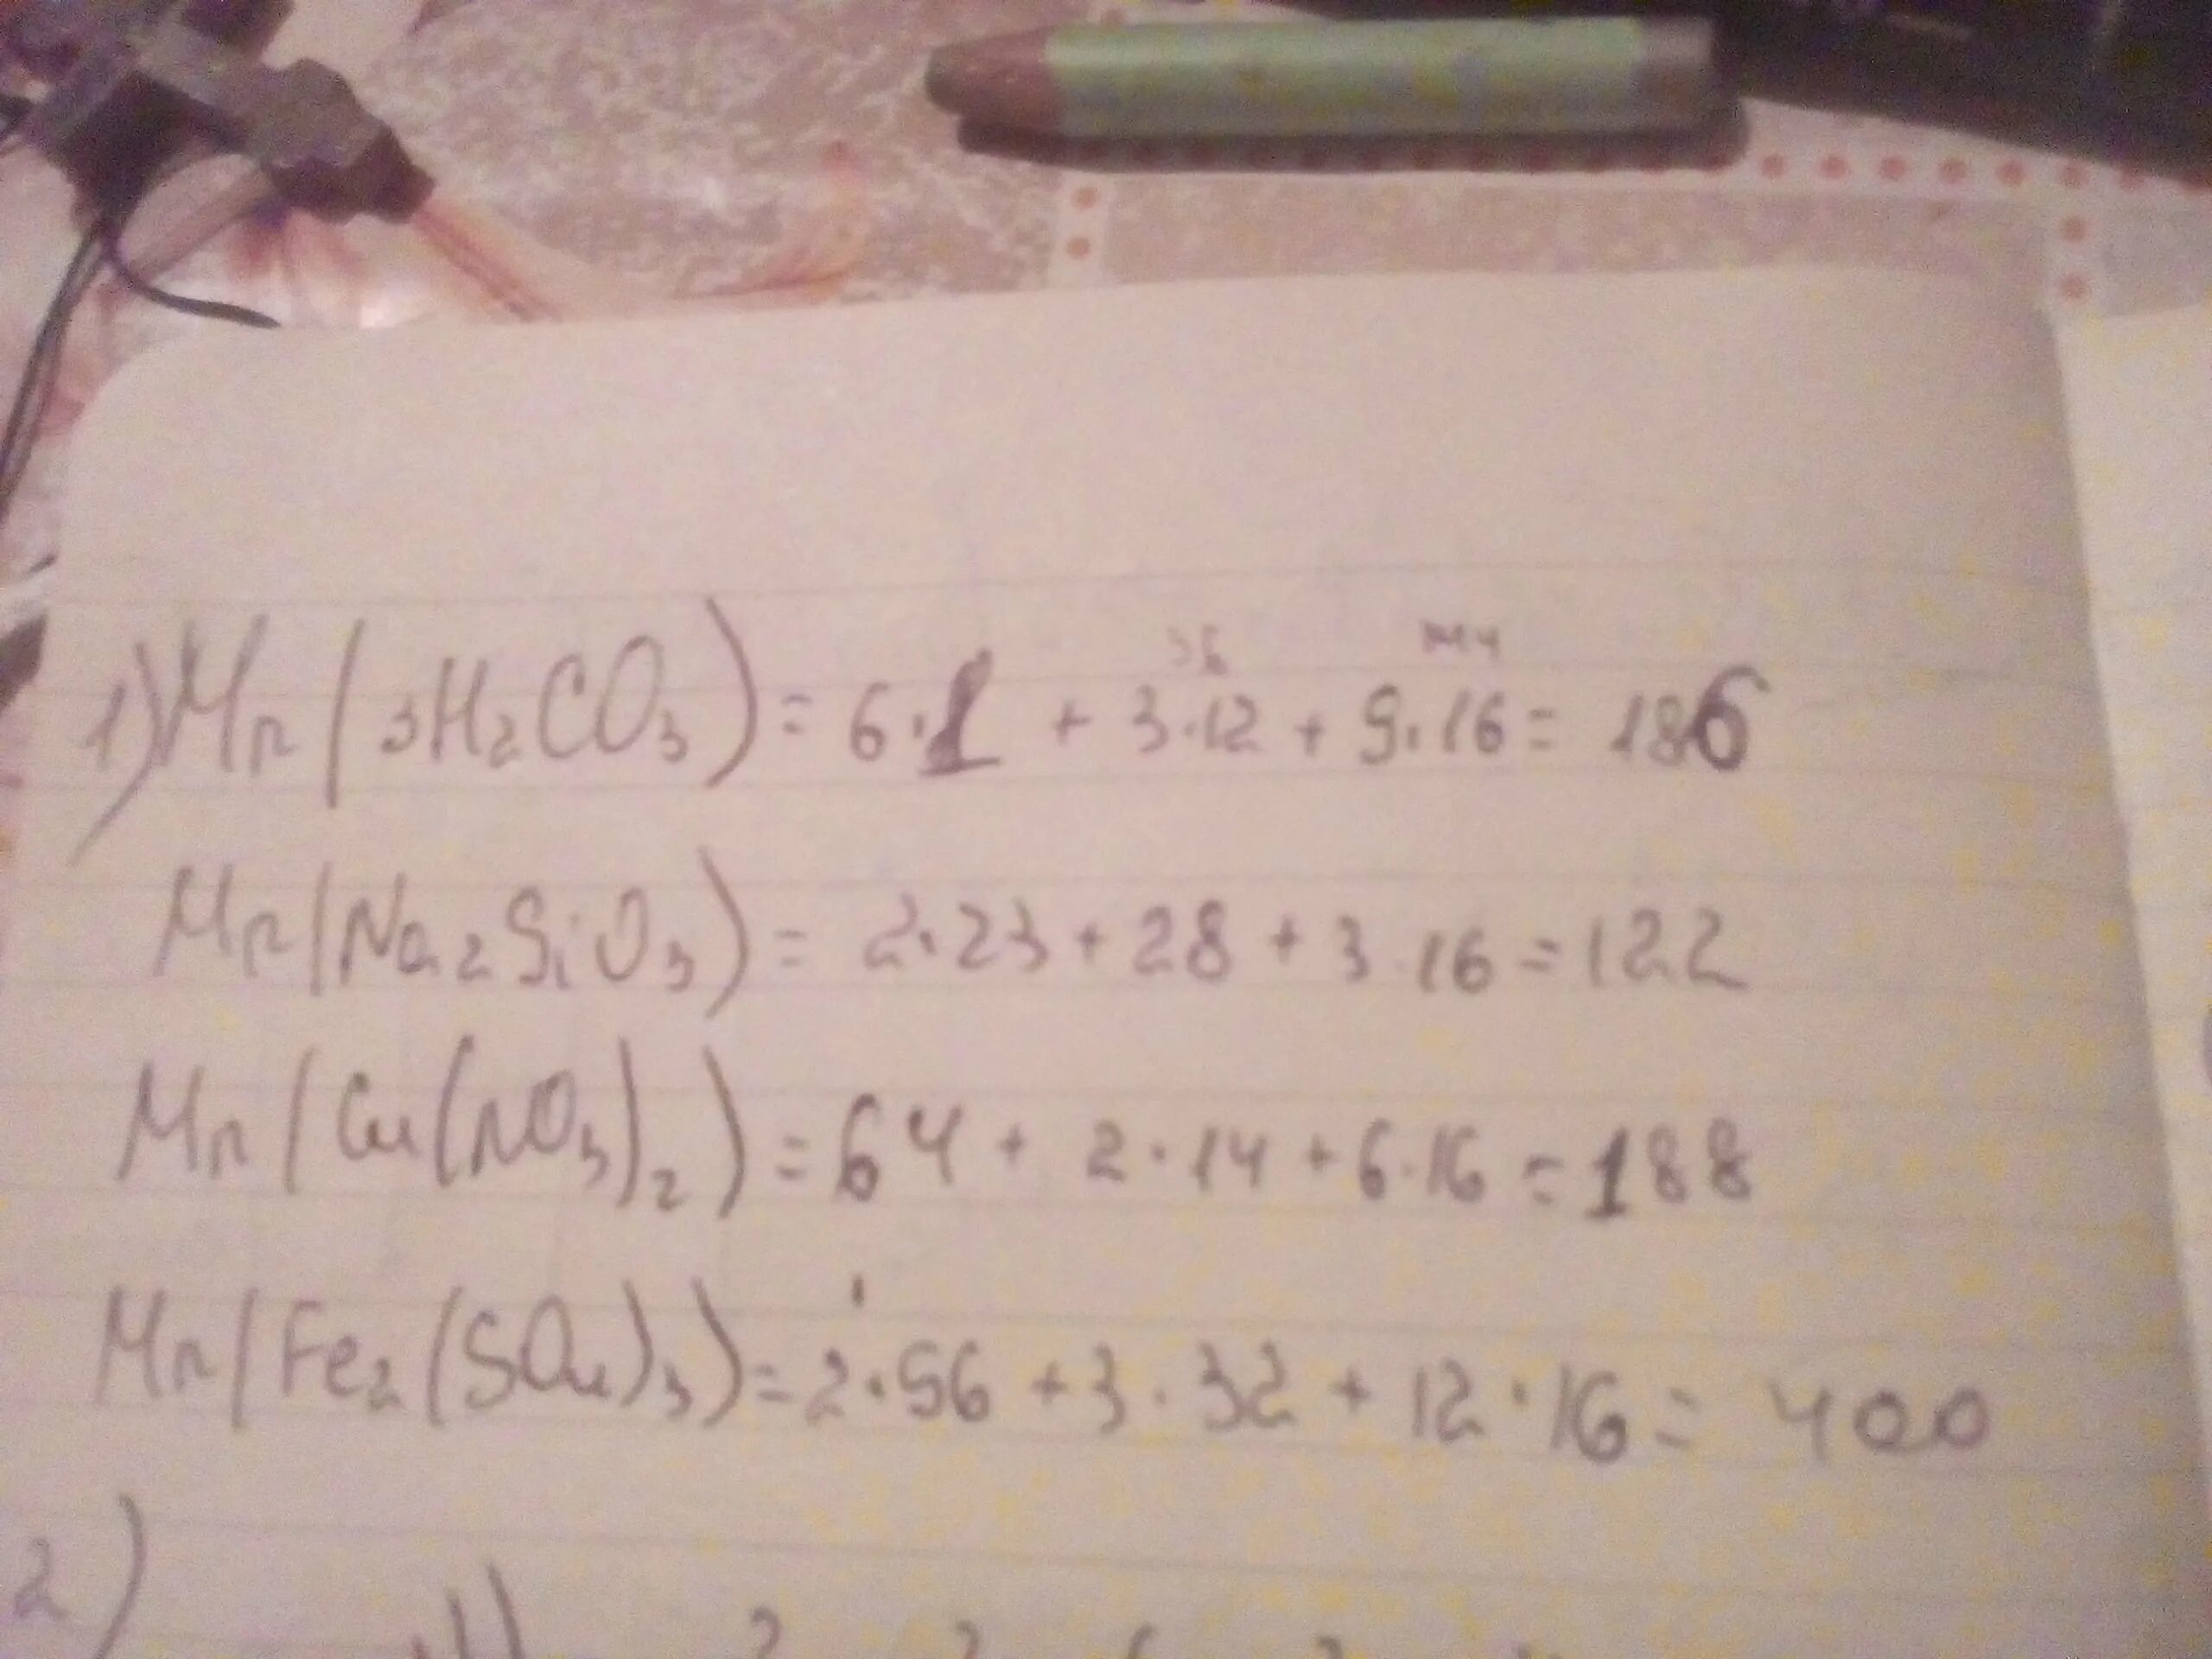 1) Mr(3H₂CO₃) = 6·1 + 3·12 + 9·16 = 186
36
Mr(Na₂SiO₃) = 2·23 + 28 + 3·16 = 122
Mr(Cu(NO₃)₂) = 64 + 2·14 + 6·16 = 188
Mr(Fe₂(SO₄)₃) = 2·56 + 3·32 + 12·16 = 400
2)